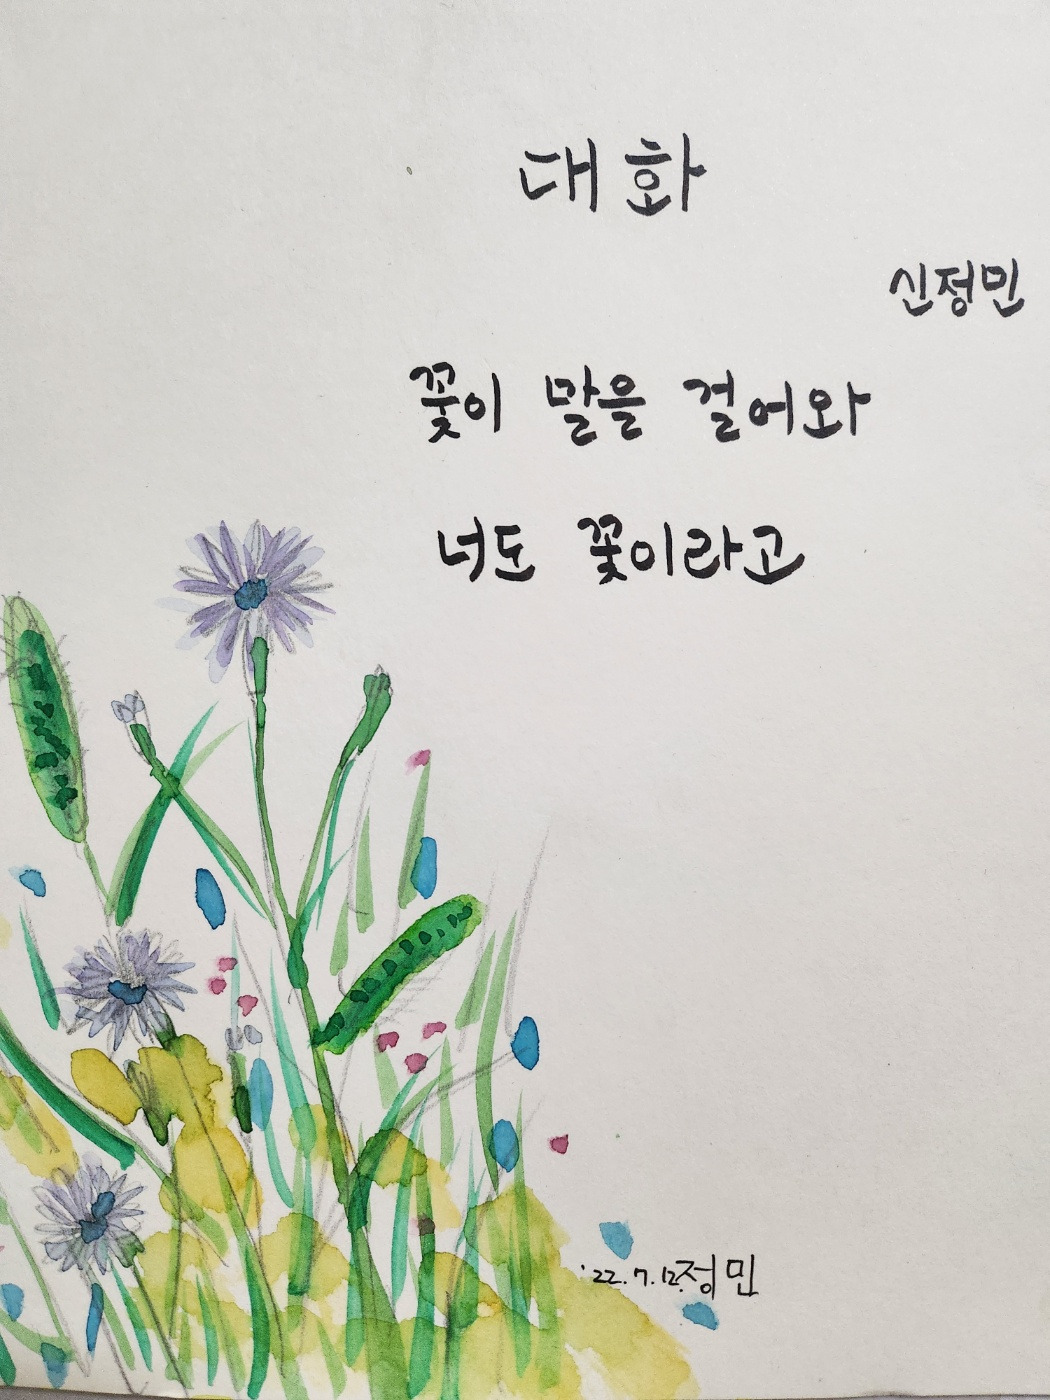 대화
신정민
꽃이 말을 걸어와
너도 꽃이라고
'22.7.12.정민